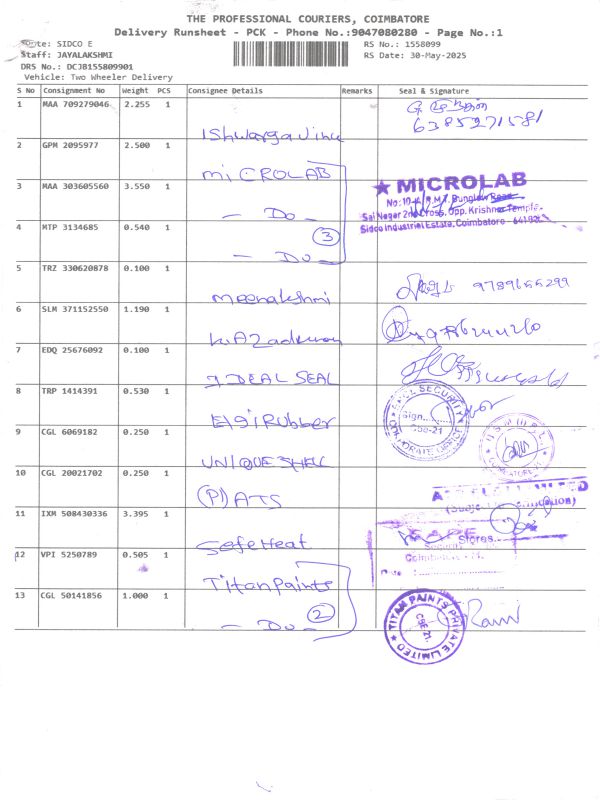 THE PROFESSIONAL COURIERS, COIMBATORE
Delivery Runsheet - PCK - Phone No.:9047080280 - Page No.:1
Route: SIDCO E
RS No.: 1558099
Staff: JAYALAKSHMI
RS Date: 30-May-2025
DRS No.: DCJ8155809901
Vehicle: Two Wheeler Delivery
S No Consignment No Weight PCS Consignee Details Remarks Seal & Signature
1 MAA 709279046 2.255 1
6385271581
2 GPM 2095977 2.500 1 MiCROLAB
3 MAA 303605560 3.550 1 - Do -
★ MICROLAB
Sai Nagar 2nd Cross, Opp. Krishna Temple,
Sidco Industrial Estate, Coimbatore - 641021
4 MTP 3134685 0.540 1 - Do - 3
5 TRZ 330620878 0.100 1 meenakshmi 9789655299
6 SLM 371152550 1.190 1
7 EDQ 25676092 0.100 1 IDEAL SEAL
8 TRP 1414391 0.530 1 ElgiRubber
SECURITY
Sign
CBE-21
CORPORATE OFFICE
9 CGL 6069182 0.250 1 UNIQUE SHELL
10 CGL 20021702 0.250 1 (P) ATS
11 IXM 508430336 3.395 1 SafeHeat
Stores
12 VPI 5250789 0.505 1 TitanPaints
Date :
13 CGL 50141856 1.000 1 - Do - 2
TITAN PAINTS PRIVATE LIMITED
CBE-21.